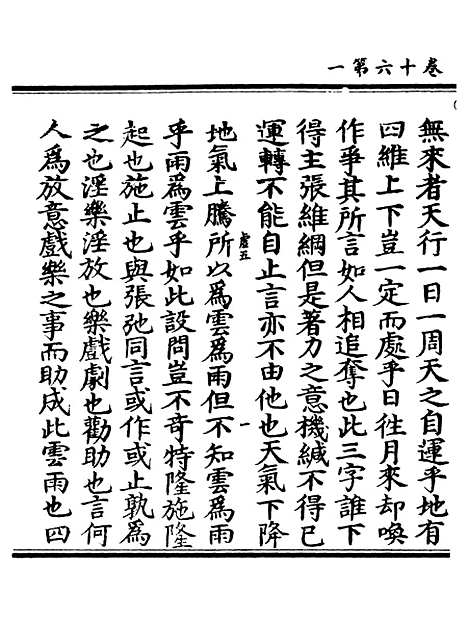 卷十六第一
無來者天行一日一周天之自運乎地有
四維上下豈一定而處乎日徃月來却喚
作爭其所言如人相追奪也此三字誰下
得主張維綱但是著力之意機緘不得已
運轉不能自止言亦不由他也天氣下降
虗五 一
地氣上騰所以為雲為雨但不知雲為雨
乎雨為雲乎如此設問豈不竒特隆施隆
起也施止也與張弛同言或作或止孰為
之也淫樂淫放也樂戲劇也勸助也言何
人為放意戲樂之事而助成此雲雨也四